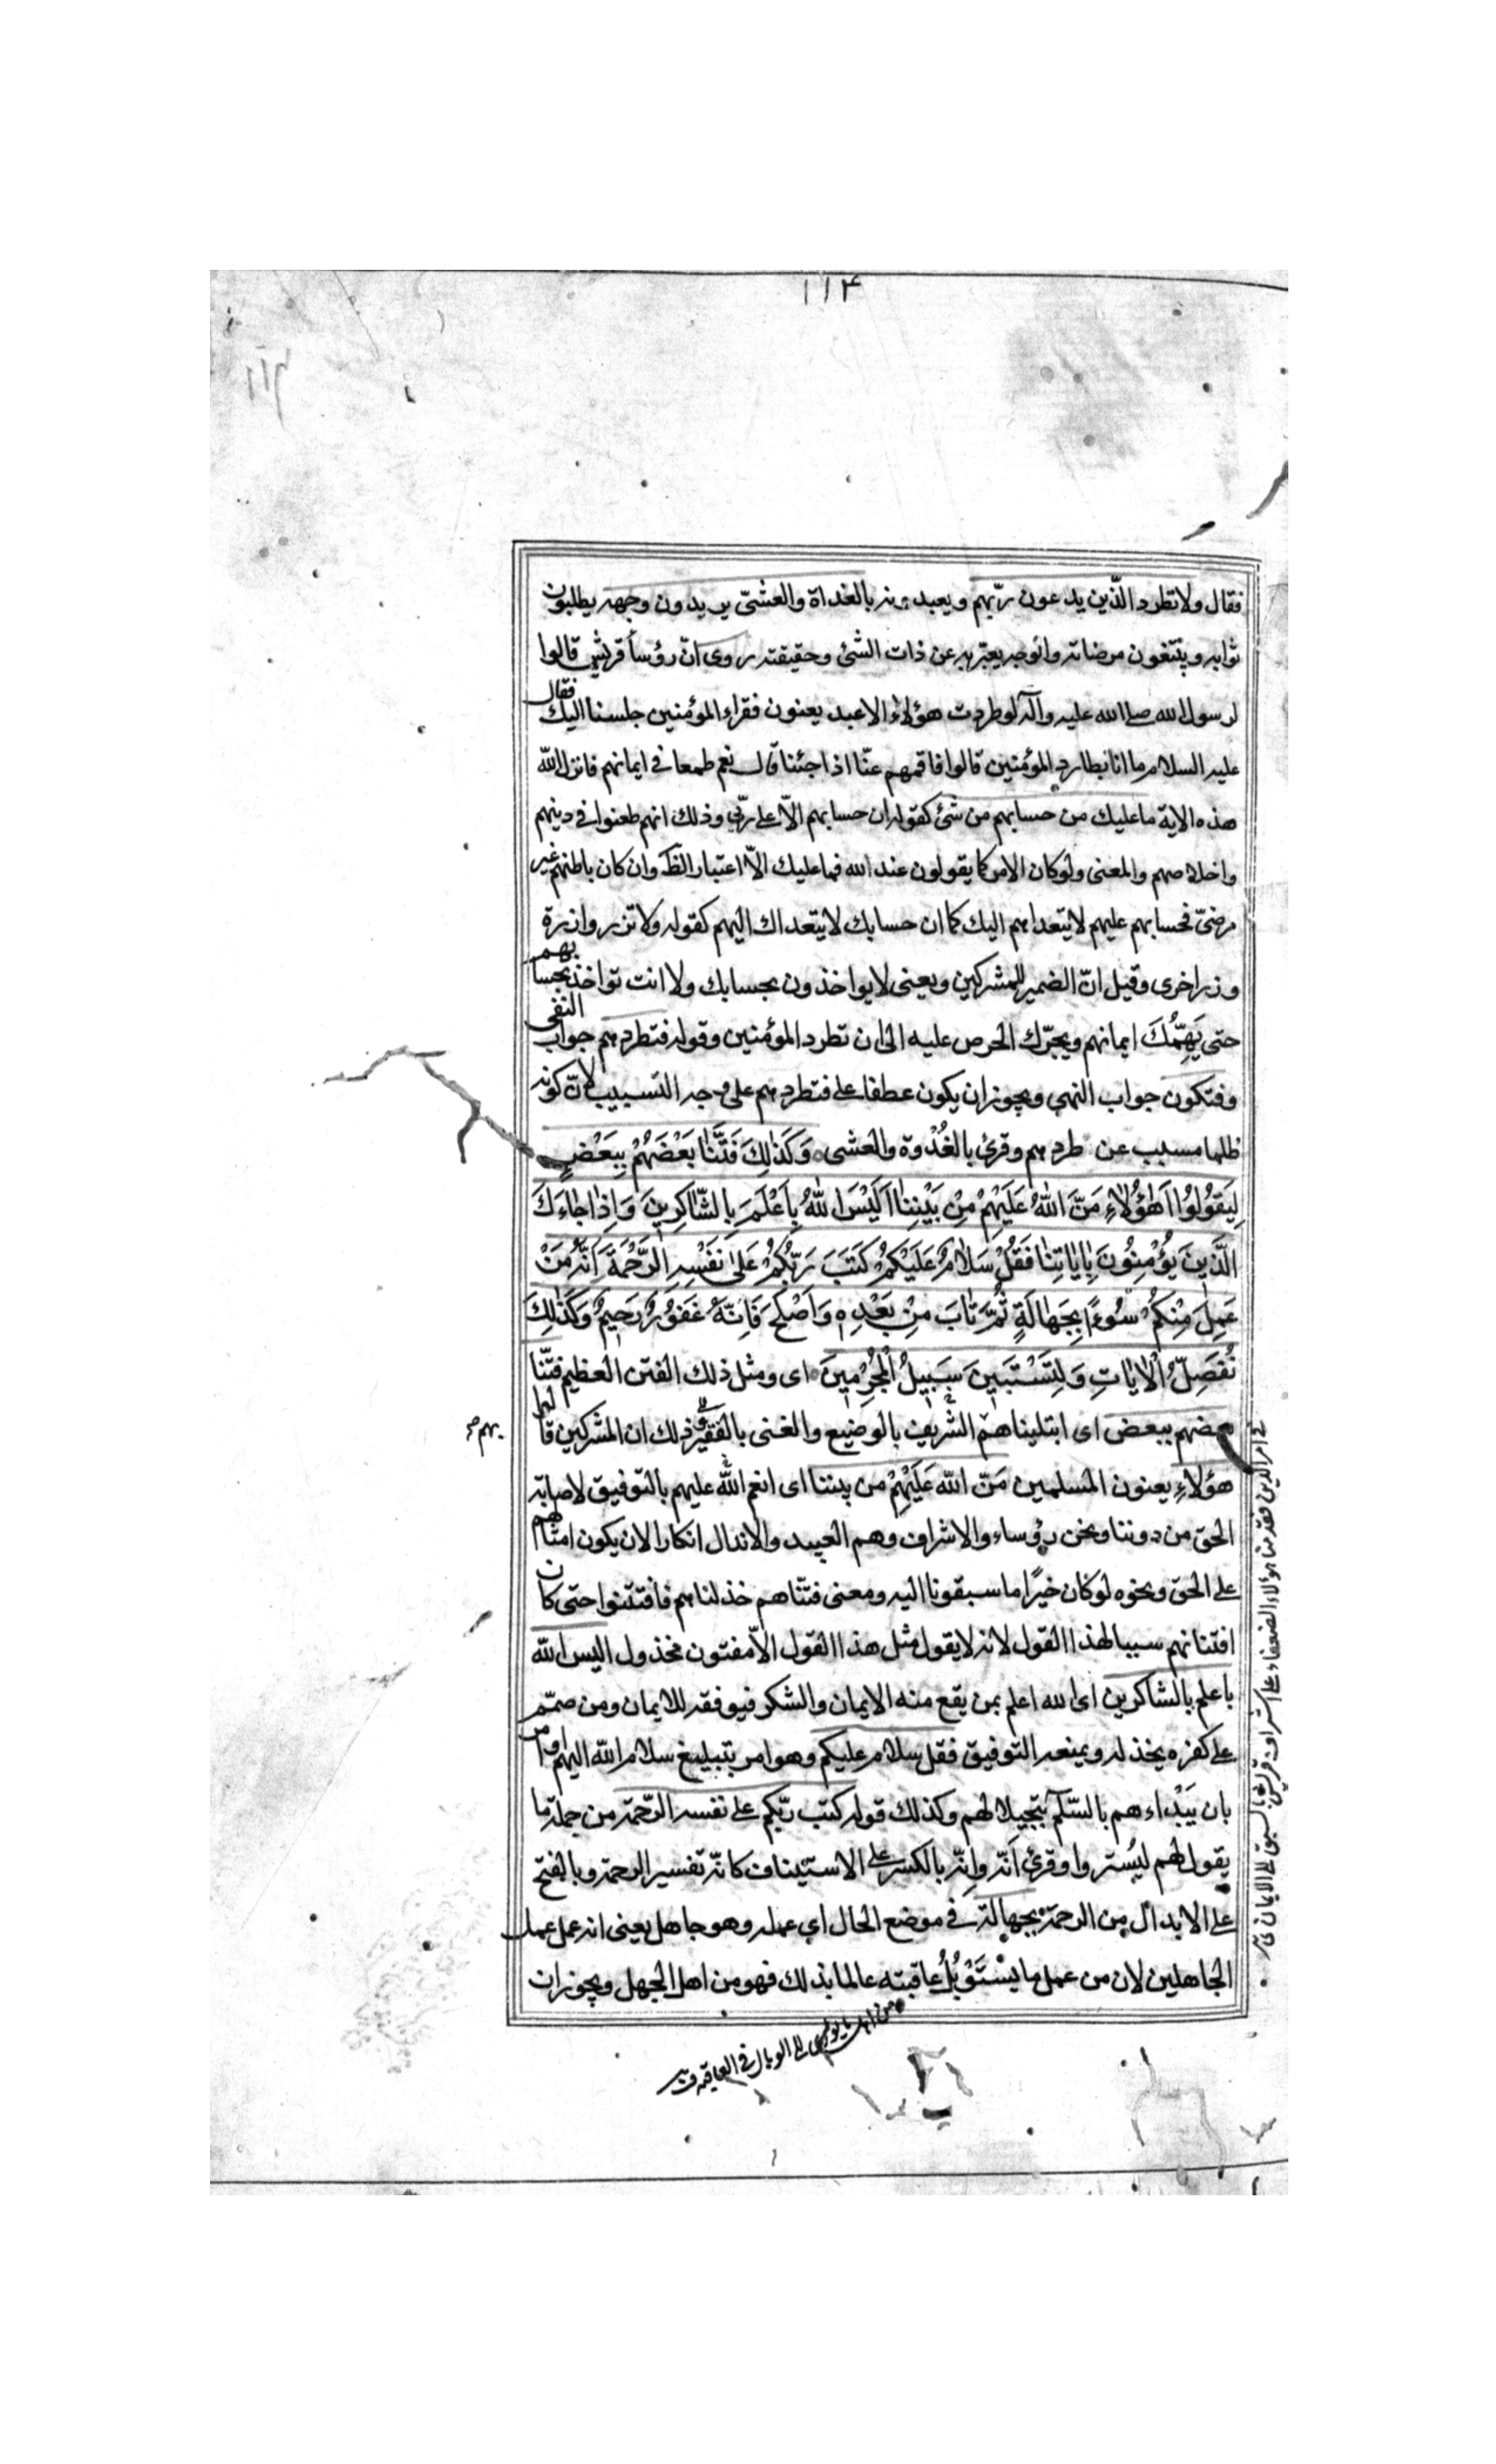 ١١٤
١١٤
فقال ولا تطرد الذّين يدعون ربّهم ويعبدونه بالغداة والعشىّ يريدون وجهه يطلبون
ثوابه ويبتغون مرضاته والوجه يعبّر به عن ذات الشئ وحقيقته روى انّ رؤسأ قريش قالوا
لرسول الله صلى الله عليه وآله لو طردت هؤلاءِ الاعبد يعنون فقراء المؤمنين جلسنا اليك فقال
عليه السلام ما انا بطارد المؤمنين قالوا فاقمهم عنّا اذا جئنا قال نعم طمعا فى ايمانهم فانزل الله
هذه الاية ما عليك من حسابهم من شئ كقوله ان حسابهم الاّ على ربّى وذلك انهم طعنوا فى دينهم
واخلاصهم والمعنى ولو كان الامر كما يقولون عند الله فما عليك الاّ اعتبار الظ وان كان باطنهم غير
مرضىّ فحسابهم عليهم لا يتعداهم اليك كما ان حسابك لا يتعداك اليهم كقوله ولا تزر وازرة
وزر اخرى وقيل انّ الضمير للمشركين ويعنى لا يواخذون بحسابك ولا انت تواخذ بحسابهم
حتى يَهِمُّكَ ايمانهم ويجرّك الحرص عليه الى ان تطرد المؤمنين وقوله فتطردهم جواب النفى
وفتكون جواب النهى ويجوز ان يكون عطفا على فتطردهم على وجه التسبيب لانّ كونه
ظالما مسبب عن طردهم وقرئ بالغُدْوة والعشى وَكَذٰلِكَ فَتَنّٰا بَعْضَهُمْ بِبَعْضٍ
لِيَقُولُوا اَهٰؤُلاٰءِ مَنَّ اللهُ عَلَيْهِمْ مِنْ بَيْنِنٰا اَلَيْسَ اللهُ بِاَعْلَمَ بِالشّٰاكِرِينَ وَاِذٰا جٰاءَكَ
الَّذِينَ يُؤْمِنُونَ بِاٰيٰاتِنٰا فَقُلْ سَلاٰمٌ عَلَيْكُمْ كَتَبَ رَبُّكُمْ عَلىٰ نَفْسِهِ الرَّحْمَةَ اَنَّهُ مَنْ
عَمِلَ مِنْكُمْ سُوءًا بِجَهٰالَةٍ ثُمَّ تٰابَ مِنْ بَعْدِهِ وَاَصْلَحَ فَاِنَّهُ غَفُورٌ رَحِيمٌ وَكَذٰلِكَ
نُفَصِّلُ الْاٰيٰاتِ وَلِتَسْتَبِينَ سَبِيلُ الْمُجْرِمِينَ اى ومثل ذلك الفتن العظيم فتنّا
بعضهم ببعض اى ابتليناهم الشريف بالوضيع والغنى بالفقير وذلك ان المشركين قالوا
بهم صح
هؤلاءِ يعنون المسلمين مَنّ الله عَلَيْهِمْ من بيننا اى انعم الله عليهم بالتوفيق لاصابة
الحق من دوننا ونحن رؤساء والاشراف وهم العبيد والانذال انكارا لان يكون امثالهم
على الحق ونحوه لو كان خيرًا ما سبقونا اليه ومعنى فتنّاهم خذلناهم فافتتنوا حتى كان
افتتانهم سببا لهذا القول لانه لا يقول مثل هذا القول الاّ مفتون مخذول اليس الله
باعلم بالشاكرين اى الله اعلم بمن يقع منه الايمان والشكر فيوفقه للايمان ومن صمّم
على كفره يخذله ويمنعه التوفيق فقل سلام عليكم وهو امر بتبليغ سلام الله اليهم او امر
بان يَبْداءهم بالسّلام تبجيلا لهم وكذلك قوله كتب ربّكم على نفسه الرّحمة من جملة ما
يقول لهم ليُستروا وقرئ اَنّه واِنّه بالكسر على الاستيناف كانّه تفسير الرحمة وبالفتح
على الابدال من الرحمة بجهالة فى موضع الحال اي عمله وهو جاهل يعنى انه عمل عمل
الجاهلين لان من عمل ما يَسْتَوْبِلُ عاقبته عالما بذلك فهو من اهل الجهل ويجوز ان
فى امر الدين فقدمنا هؤلاء الضعفاء على اشراف قريش بالسبق الى الايمان
يؤدى الى الوبال فى العاقبة